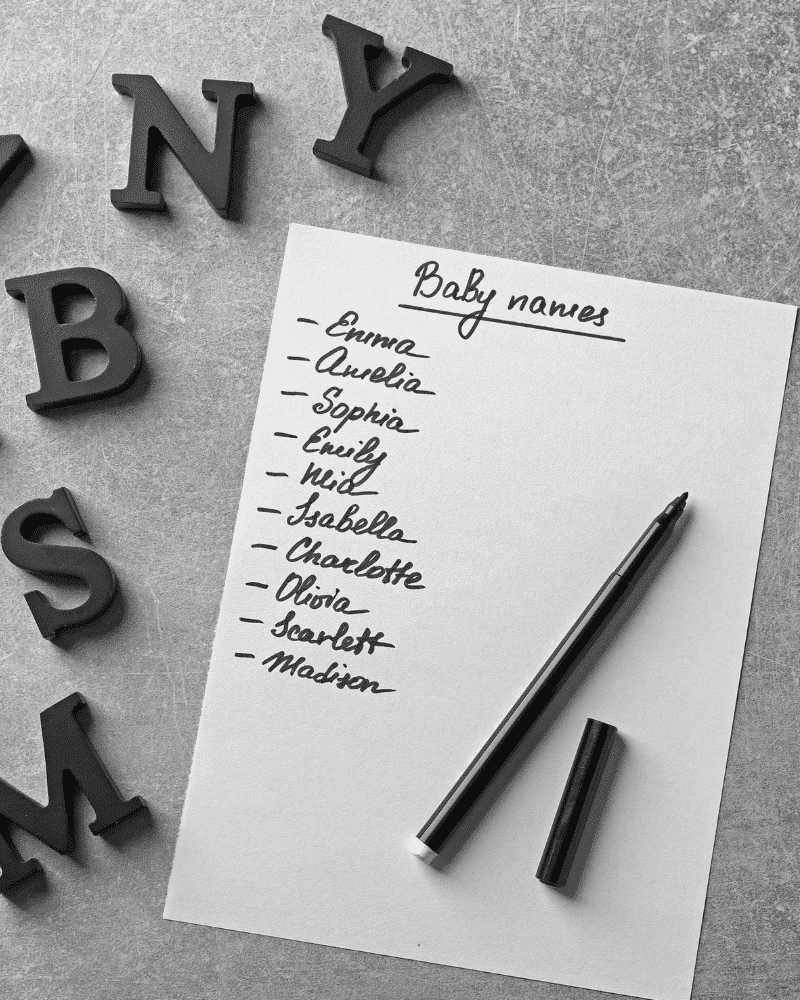 N Y
B
S
M
Baby names
- Emma
- Amelia
- Sophia
- Emily
- Mia
- Isabella
- Charlotte
- Olivia
- Scarlett
- Madison